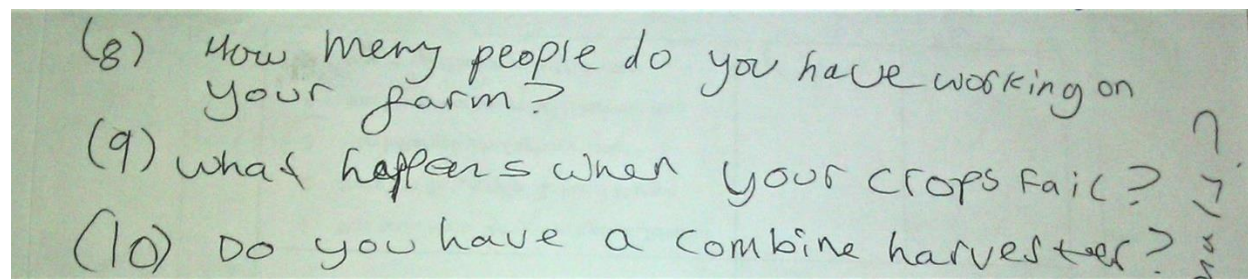 (8) How meny people do you have working on
your farm?
(9) what happens when your crops fail?
(10) Do you have a combine harvester?